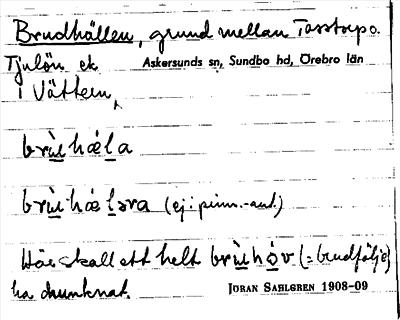 Brudhällen, grund mellan Tosstorp o.
Tjulön ek. Askersunds sn, Sundbo hd, Örebro län
i Vättern,
brùehǽla
brùehǽləra (ej: pinn.-ant.)
Här skall ett helt brùehòv (= brudfölje)
ha drunknat. JÖRAN SAHLGREN 1908–09